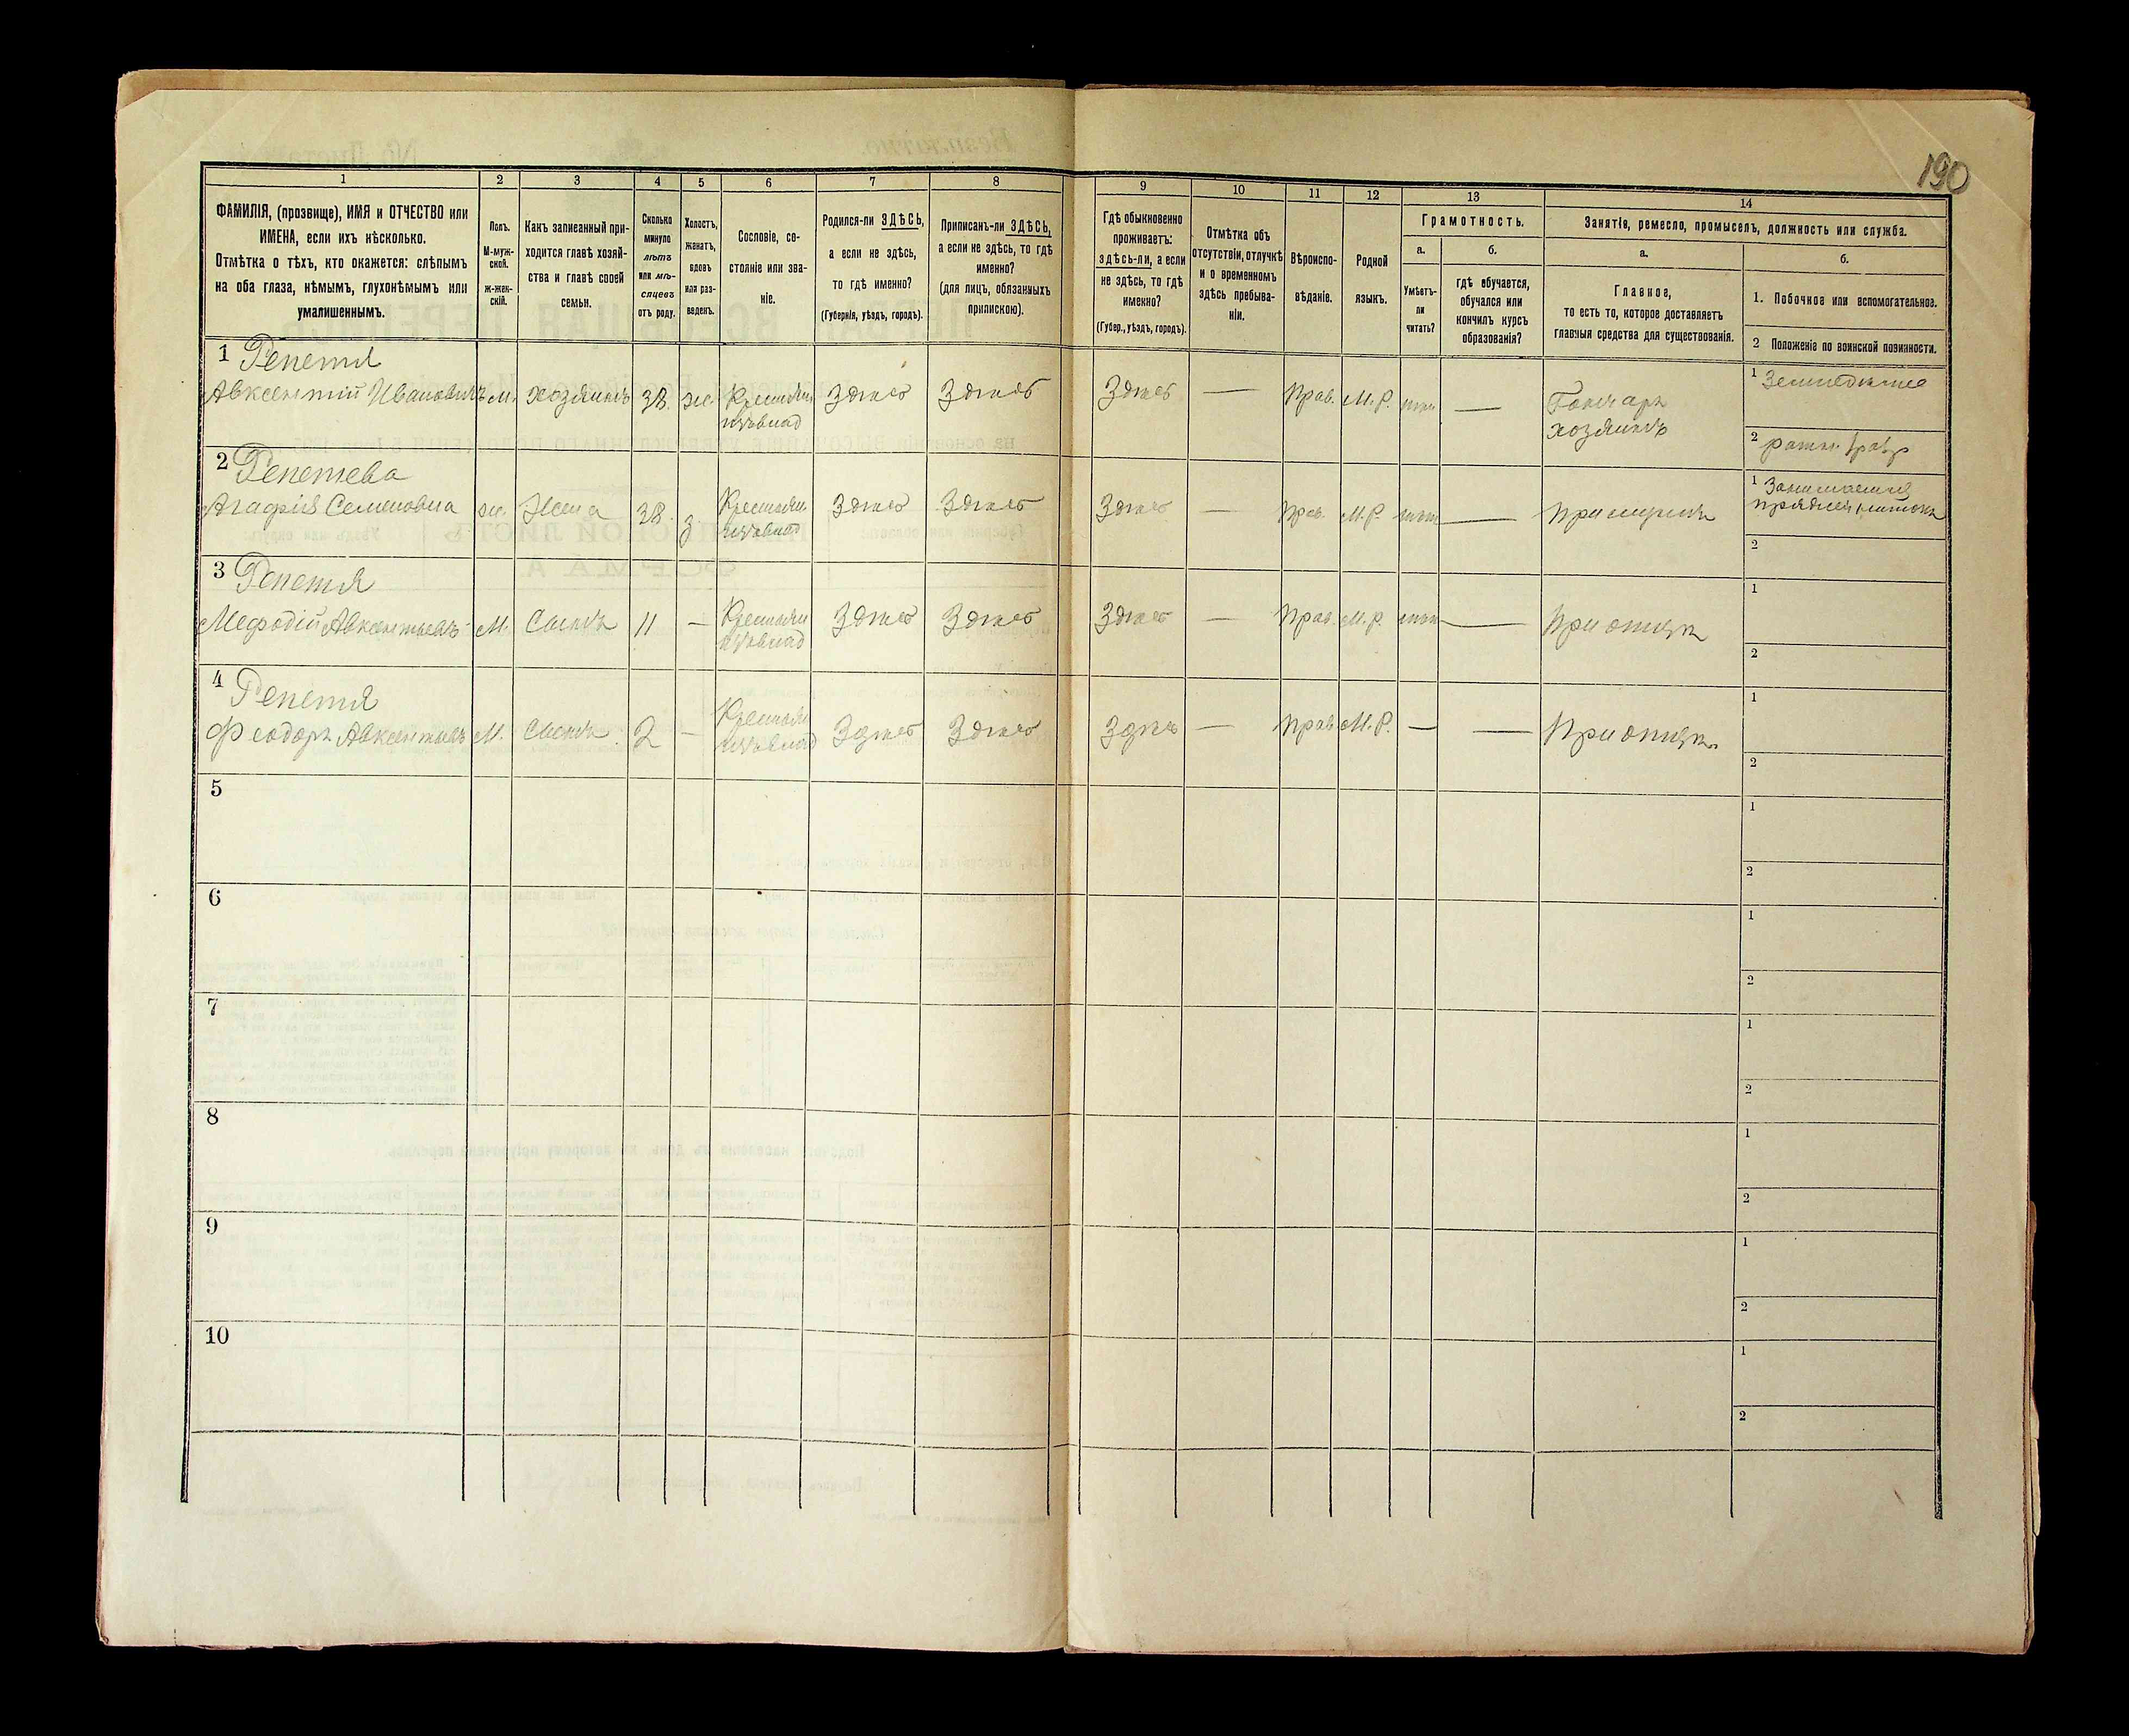 190
1
2
3
4
5
6
7
8
9
10
11
12
13
14
ФАМИЛІЯ, (прозвище), ИМЯ и ОТЧЕСТВО или
ИМЕНА, если ихъ нѣсколько.
Отмѣтка о тѣхъ, кто окажется: слѣпымъ
на оба глаза, нѣмымъ, глухонѣмымъ или
умалишеннымъ.
Полъ.
М-муж-
ской.
ж-жен-
скій.
Какъ записанный при-
ходится главѣ хозяй-
ства и главѣ своей
семьи.
Сколько
минуло
лѣтъ
или мѣ-
сяцевъ
отъ роду.
Холостъ,
женатъ,
вдовъ
или раз-
веденъ.
Сословіе, со-
стояніе или зва-
ніе.
Родился-ли ЗДѢСЬ,
а если не здѣсь,
то гдѣ именно?
(Губернія, уѣздъ, городъ).
Приписанъ-ли ЗДѢСЬ,
а если не здѣсь, то гдѣ
именно?
(для лицъ, обязанныхъ
припискою).
Гдѣ обыкновенно
проживаетъ:
здѣсь-ли, а если
не здѣсь, то гдѣ
именно?
(Губер., уѣздъ, городъ).
Отмѣтка объ
отсутствіи, отлучкѣ
и о временномъ
здѣсь пребыва-
ніи.
Вѣроиспо-
вѣданіе.
Родной
языкъ.
Грамотность.
а.
Умѣетъ-
ли
читать?
б.
гдѣ обучается,
обучался или
кончилъ курсъ
образованія?
Занятія, ремесло, промыселъ, должность или служба.
а.
Главное,
то есть то, которое доставляетъ
главныя средства для существованія.
б.
1. Побочное или вспомогательное.
2 Положеніе по воинской повинности.
1 Репетя
Авксентій Ивановичъ М. хозяинъ 38. ж. Крестьян. Здѣсь Здѣсь Здѣсь — Прав. М.Р. нѣтъ — Гончаръ
хозяинъ
1 Земледѣліе
2 ратн.
2 Репетева
Агафія Семеновна ж. Жена 38. з. Крестьян. Здѣсь Здѣсь Здѣсь — Прав. М.Р. нѣтъ — При мужѣ
1 Занимается
пряжею нитокъ
2
3 Репетя
Мефодій Авксентьевъ М. Сынъ 11 — Крестьян Здѣсь Здѣсь Здѣсь — Прав. М.Р. нѣтъ — При отцѣ
1
2
4 Репетя
Феодоръ Авксентьевъ М. Сынъ 2 — Крестьян Здѣсь Здѣсь Здѣсь — Прав. М.Р. — — При отцѣ
1
2
5
1
2
6
1
2
7
1
2
8
1
2
9
1
2
10
1
2